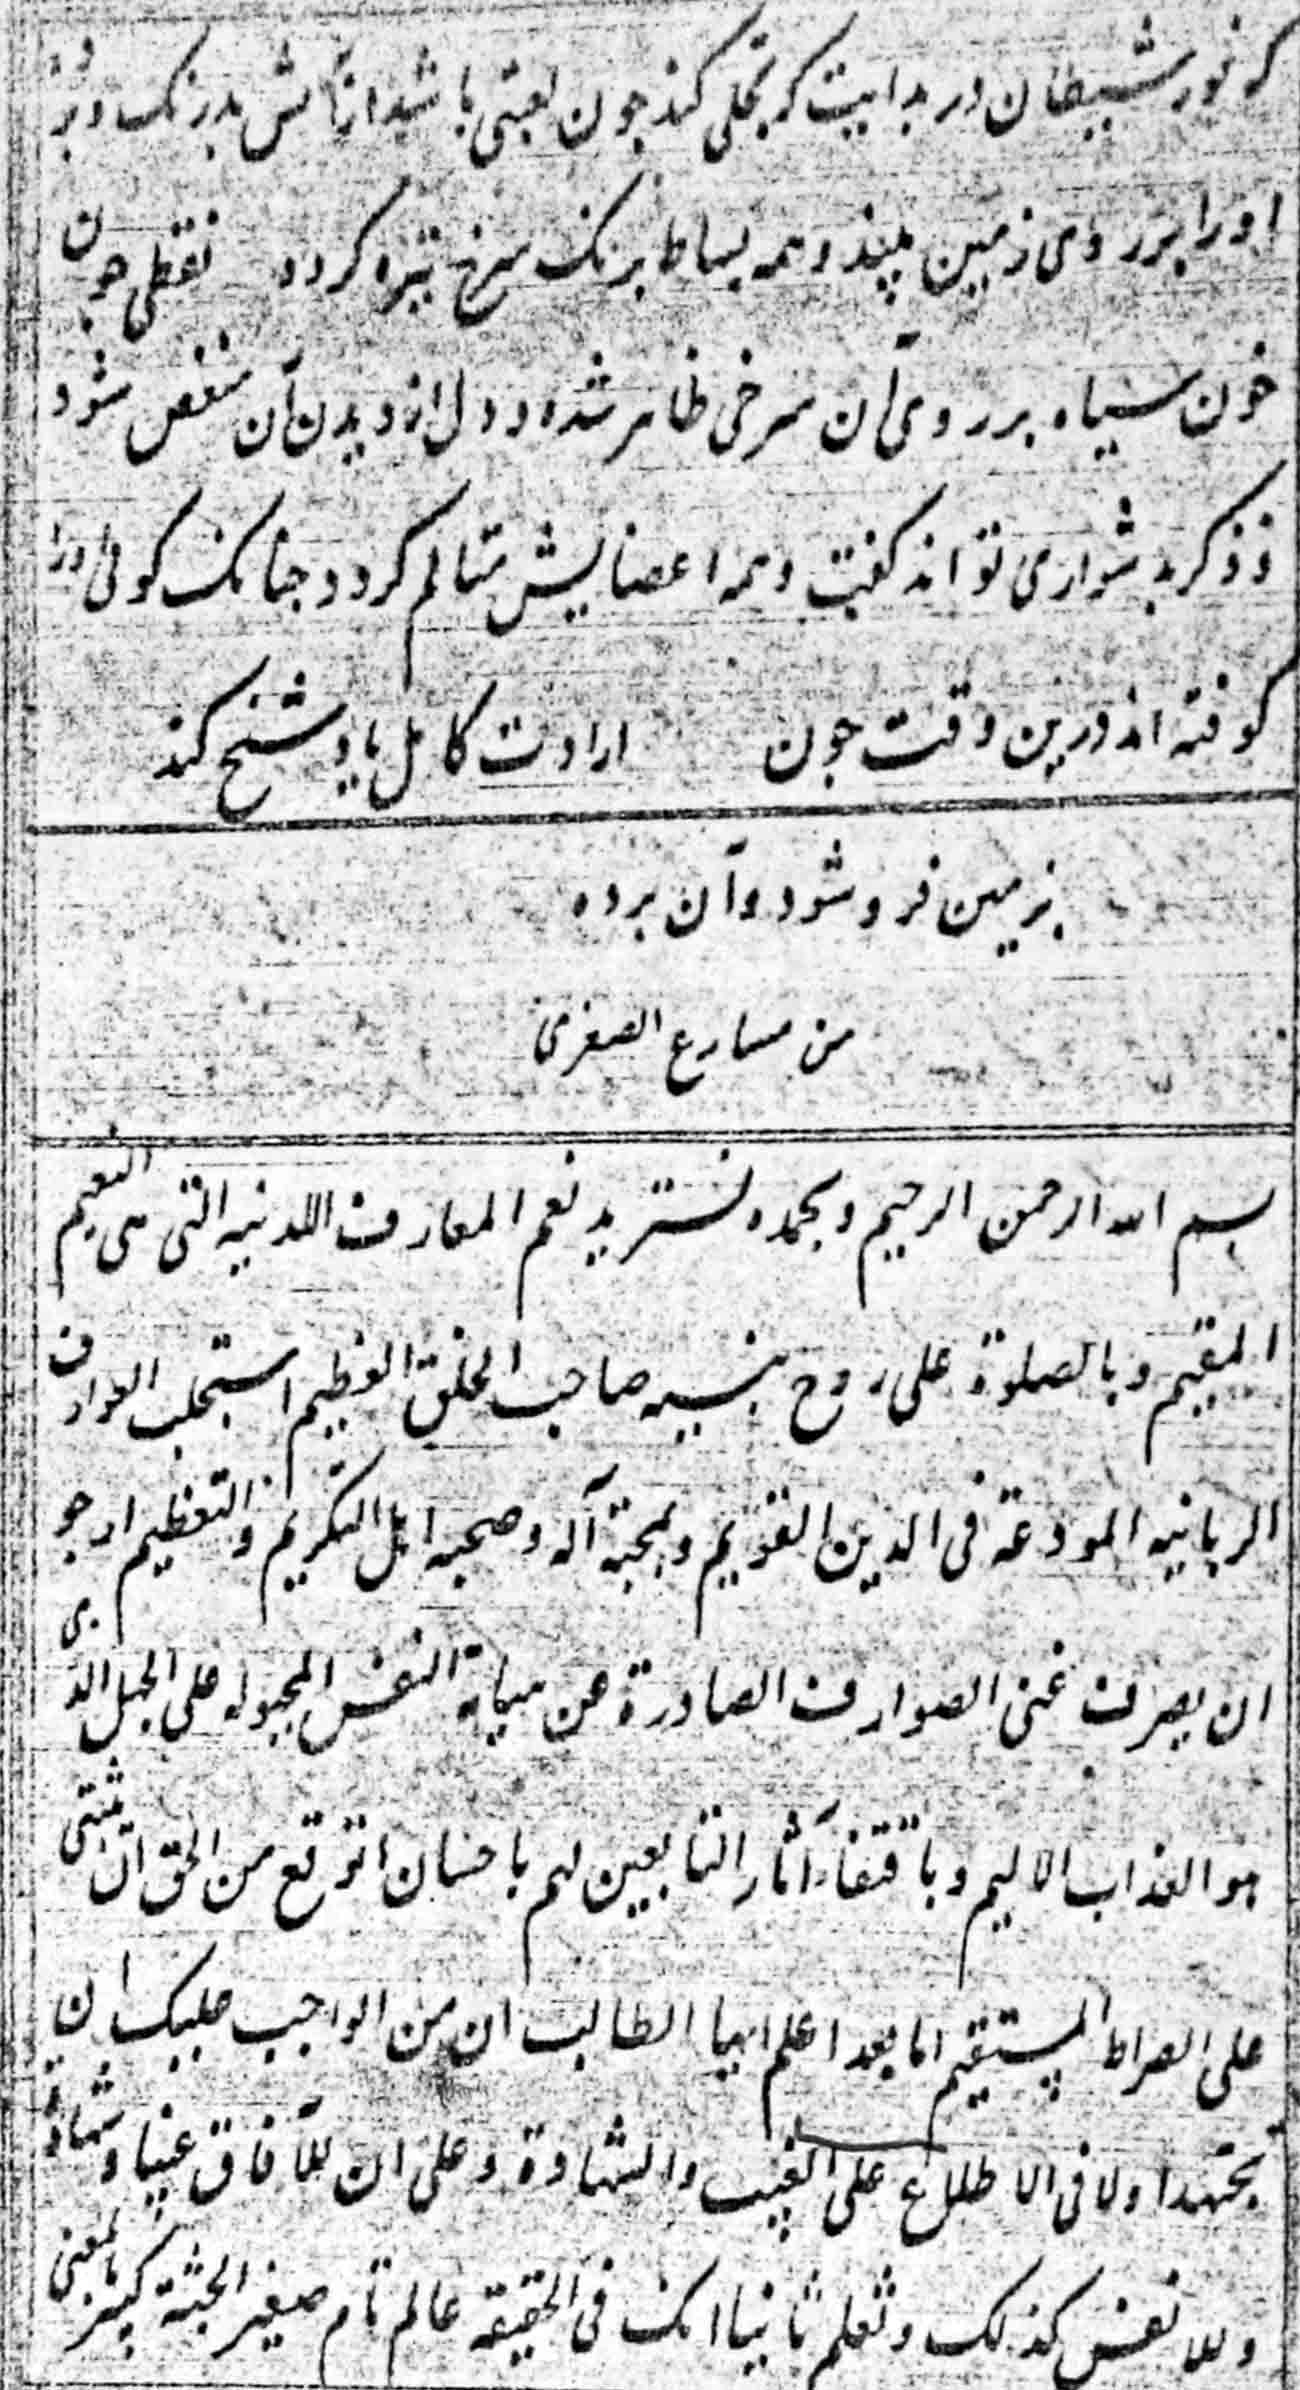 که نور شیطان در بدایت که تجلی کند جون لعبتی باشد از آتش بدرنک و نور
اورا بر روی زمین بیند و همه بساط برنک سرخ تیره کردد نقطی جون
خون سیاه بر روی آن سرخی ظاهر شده و دل از دیدن آن منغص شود
و ذکر بدشواری تواند کفت و همه اعضایش متالم کردد جنانک کوئی اورا
کوفته اند درین وقت جون ارادت کامل یاد شیخ کند
بزمین فرو شود و آن برده
من مسارع الصغری
بسم الله الرحمن الرحیم وبحمده نستزید نعم المعارف اللدنیه التی هی النعیم
المقیم وبالصلوة علی روح نبیه صاحب الخلق العظیم استجلب العوارف
الربانیه المودعة فی الدین القویم وبمحبة آله وصحبه اهل التکریم والتعظیم ارجو
ان یصرف عنی الصوارف الصادرة عن النفس المجبوله علی الجهل الذی
هو العذاب الالیم وباقتفاء آثار التابعین لهم باحسان اتوقع من الحق ان یثبتنی
علی الصراط المستقیم اما بعد اعلم ایها الطالب ان من الواجب علیک ان
تجتهد اولا فی الاطلاع علی الغیب والشهادة وعلی ان للآفاق غیبا وشهادة
وللانفس کذلک وتعلم ثانیا انک فی الحقیقه عالم تام صغیر الجثة کبیر المعنی